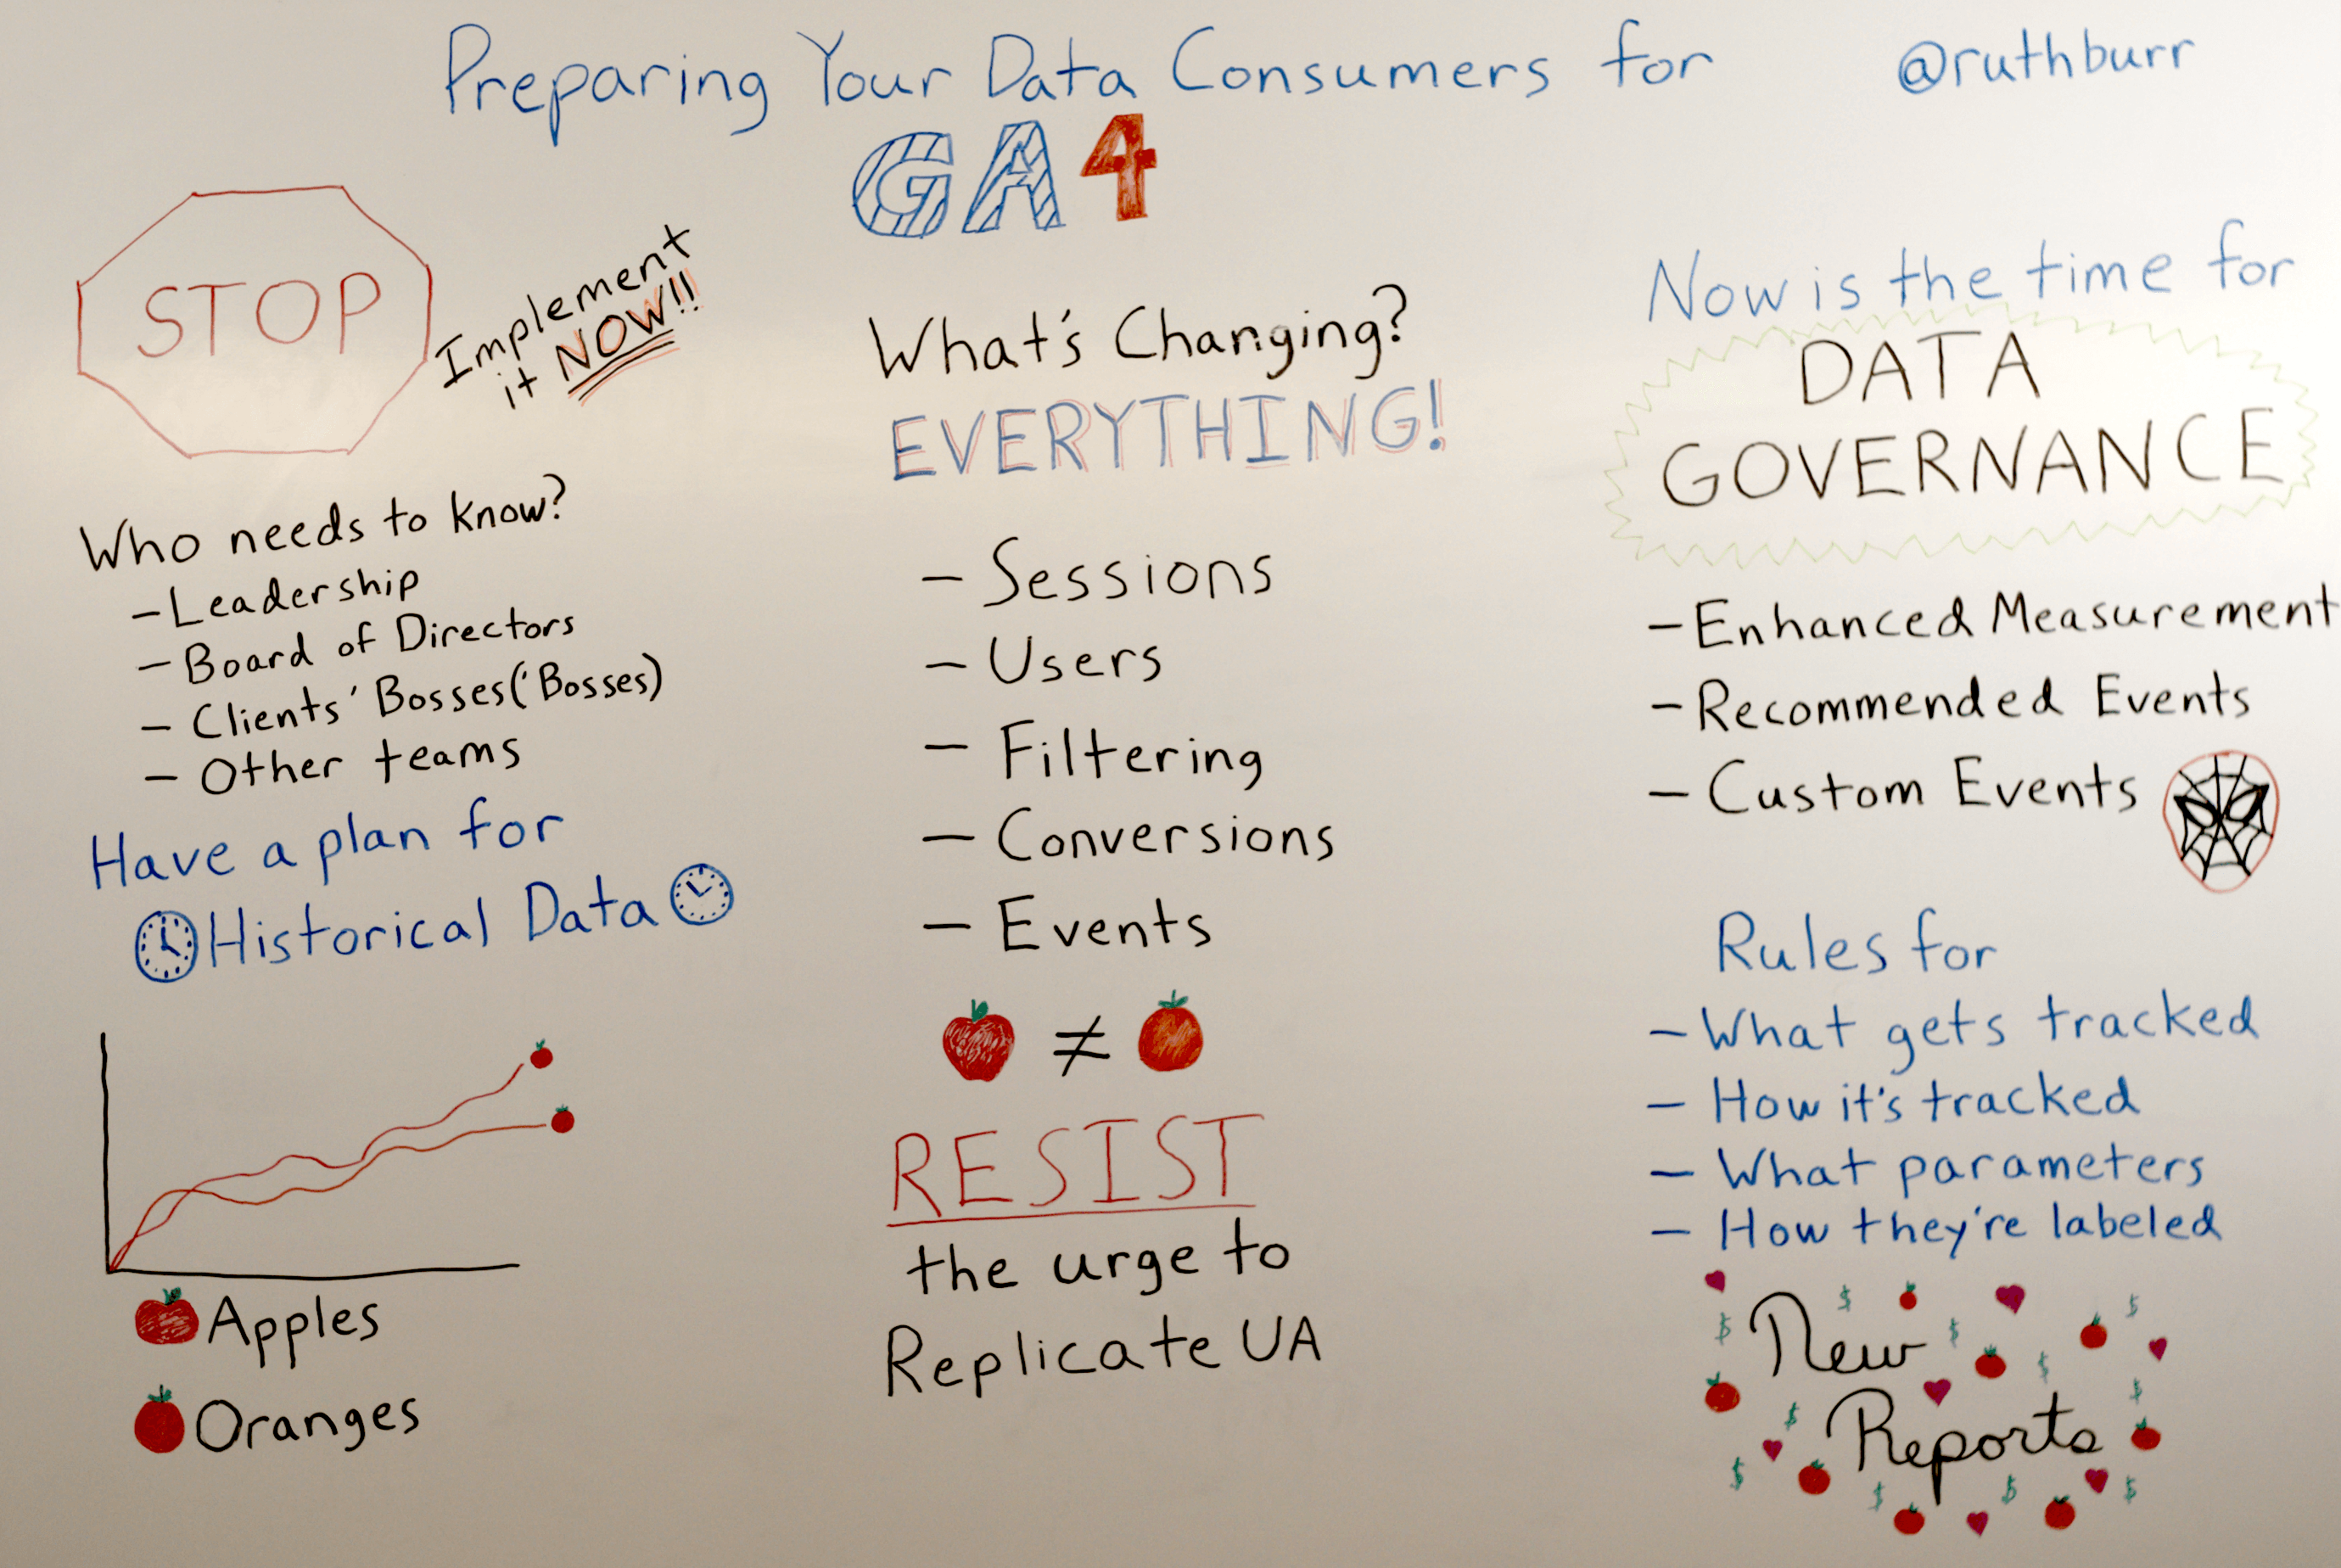 Preparing Your Data Consumers for
GA4
@ruthburr
STOP
Implement
it NOW!!
Who needs to know?
- Leadership
- Board of Directors
- Clients' Bosses('Bosses)
- Other teams
Have a plan for
Historical Data
Apples
Oranges
What's Changing?
EVERYTHING!
- Sessions
- Users
- Filtering
- Conversions
- Events
≠
RESIST
the urge to
Replicate UA
Now is the time for
DATA
GOVERNANCE
- Enhanced Measurement
- Recommended Events
- Custom Events
Rules for
- What gets tracked
- How it's tracked
- What parameters
- How they're labeled
New
Reports